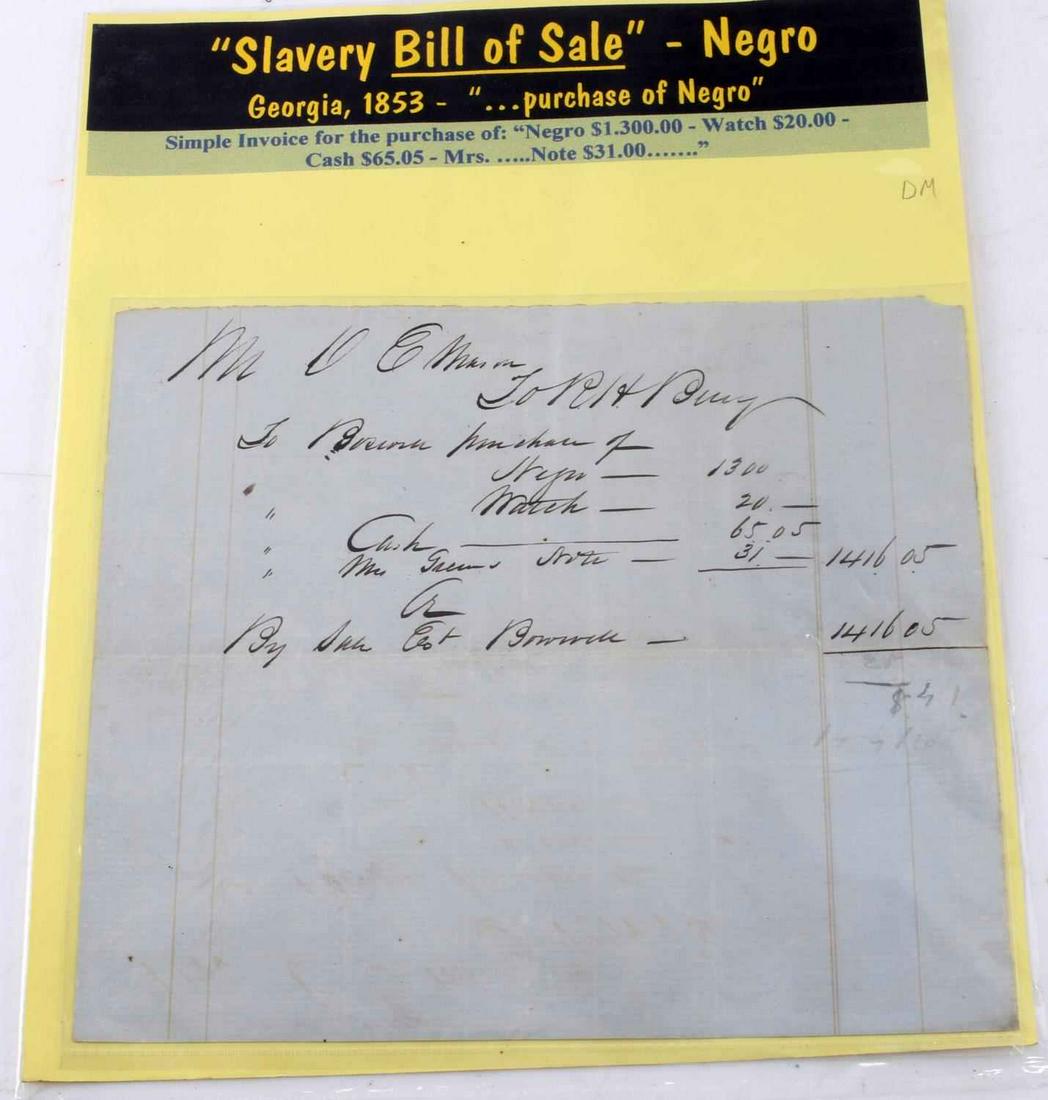 “Slavery Bill of Sale” - Negro
Georgia, 1853 - “...purchase of Negro”
Simple Invoice for the purchase of: “Negro $1.300.00 - Watch $20.00 -
Cash $65.05 - Mrs. .....Note $31.00.......”
DM
Mr O E Mason
To R H Berry
To purchase of
Negro — 1300
" Watch — 20. —
" Cash — 65.05
" Mrs Note — 31 — 1416 05
Cr
By Sale Est — 1416 05